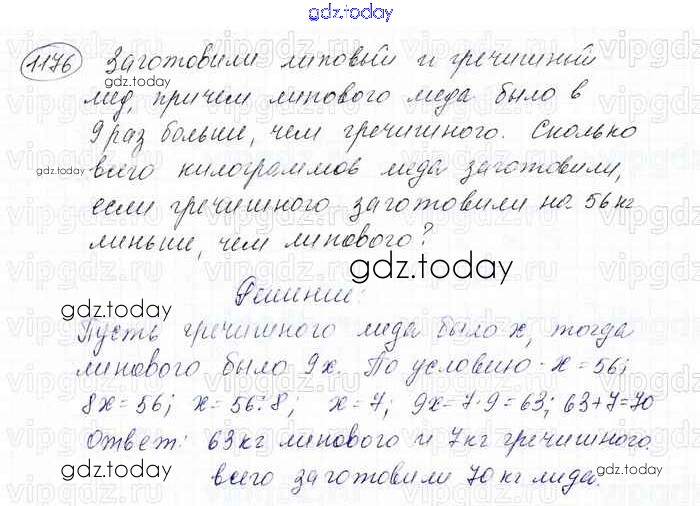 gdz.today
1176 Заготовили липовый и гречишный
gdz.today
мёд, причем липового меда было в
9 раз больше, чем гречишного. Сколько
всего килограммов меда заготовили,
gdz.today
если гречишного заготовили на 56 кг
меньше, чем липового?
gdz.today
gdz.today
Решение:
Пусть гречишного меда было x, тогда
липового было 9x. По условию - x = 56;
gdz.today
8x = 56; x = 56:8; x = 7; 9x = 7·9 = 63; 63+7=70
Ответ: 63 кг липового и 7 кг гречишного.
gdz.today
всего заготовили 70 кг меда.
gdz.today